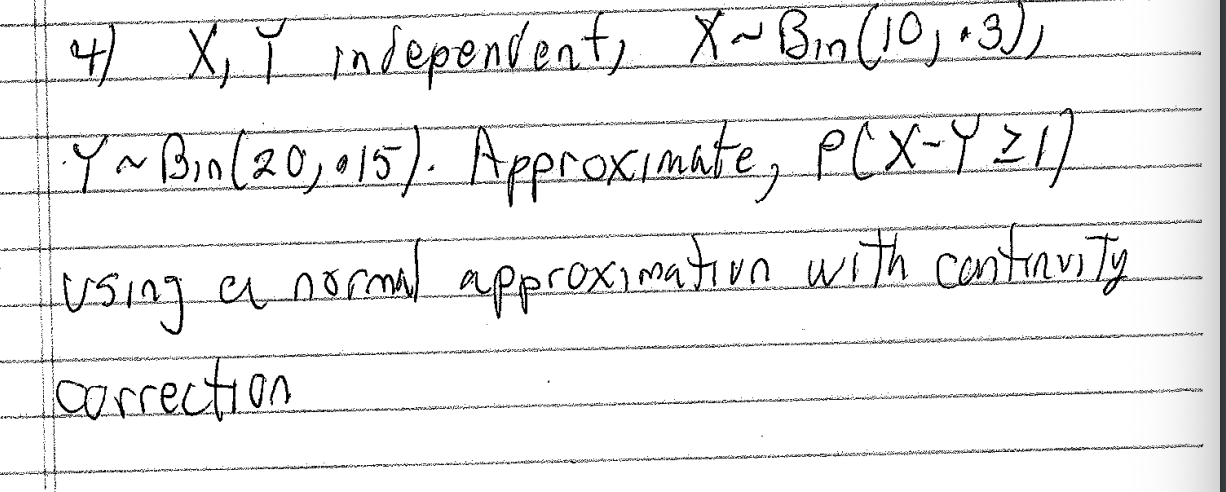 4) X, Y independent, X~Bin(10, .3),
Y~Bin(20, .15). Approximate, P(X-Y≥1)
using a normal approximation with continuity
correction